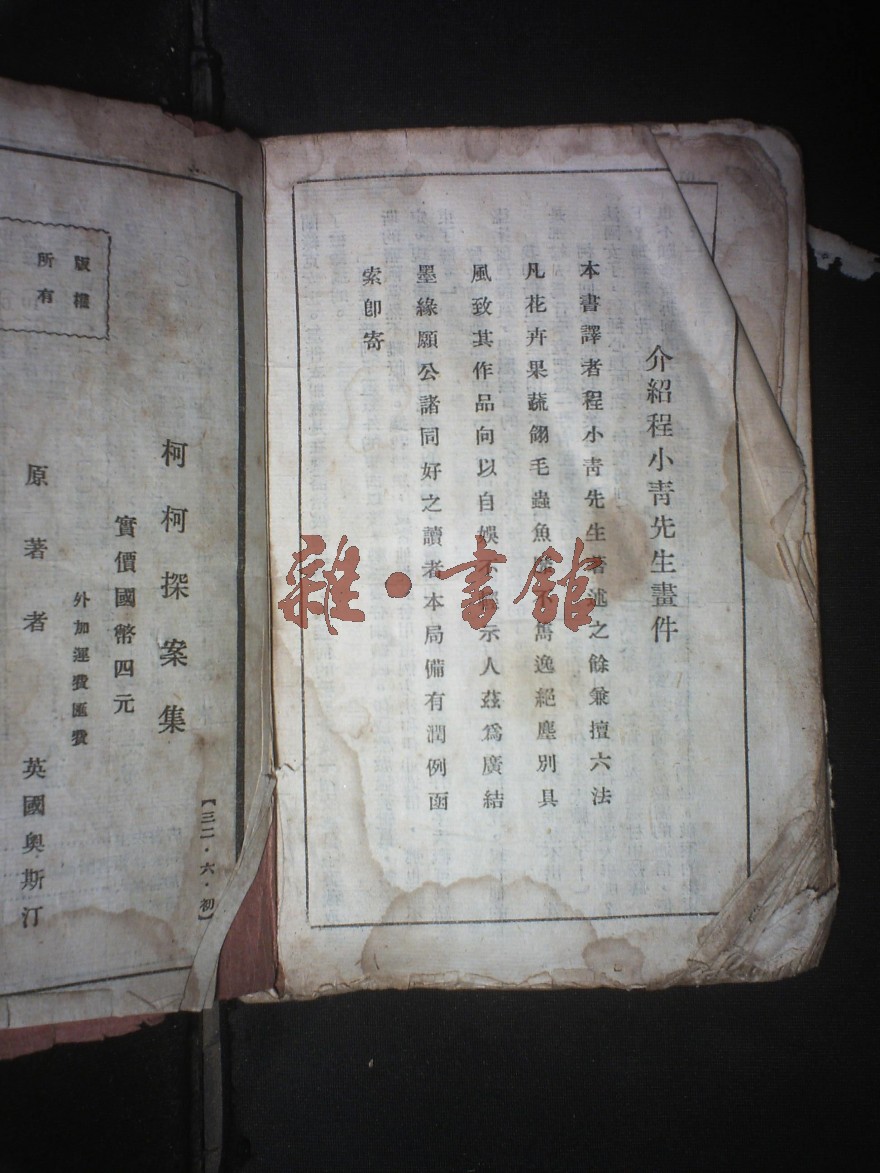 介紹程小青先生畫件
本書譯者程小青先生著述之餘兼擅六法
凡花卉果蔬翎毛蟲魚 雋逸絕塵別具
風致其作品向以自娛不 示人茲爲廣結
墨緣願公諸同好之讀者本局備有潤例函
索卽寄
【三二・六・初】
柯柯探案集
實價國幣四元
外加運費匯費
版權
所有
原著者 英國奧斯汀
雜・書館